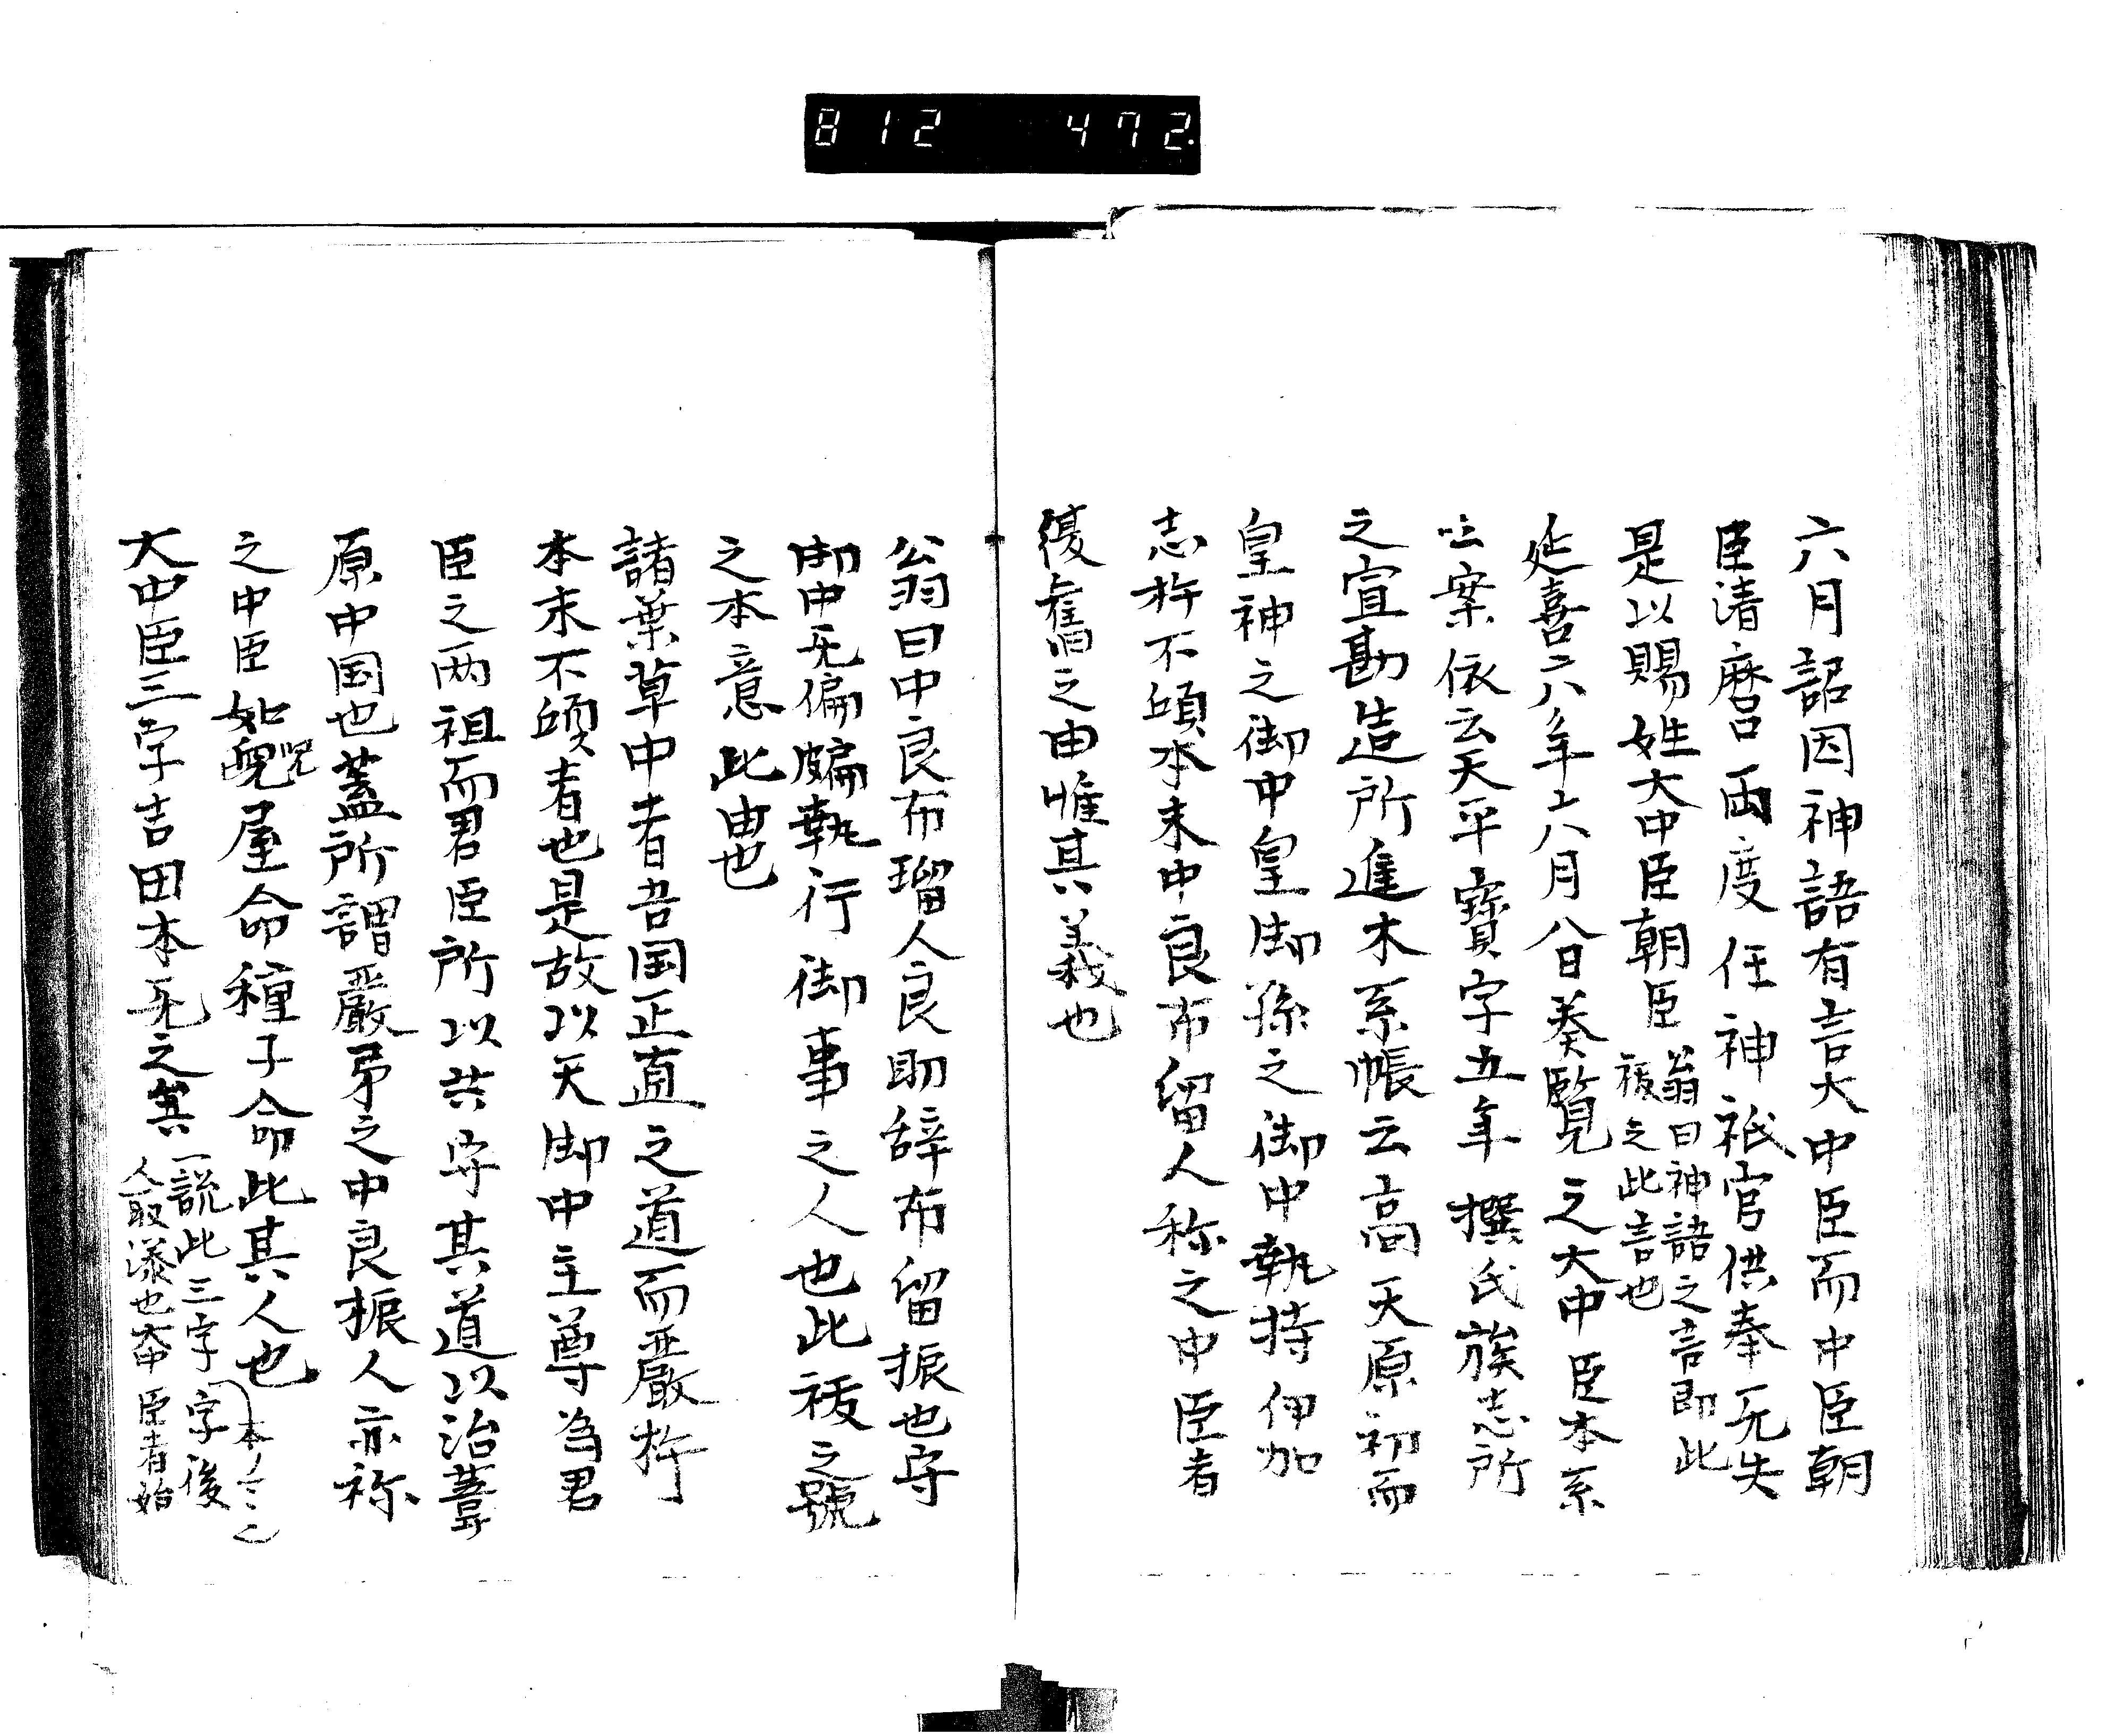 812 472
六月詔因神語有言大中臣而中臣朝
臣清麿両度任神祇官供奉无失
是以賜姓大中臣朝臣
翁曰神語之言即此
祓之此言也
延喜六年六月八日奏覧之大中臣本系
案依云天平寶字五年撰氏族志所
之宣勘造所進本系帳云高天原初而
皇神之御中皇御孫之御中執持伊加
志桙不傾本末中良布留人称之中臣者
復舊之由惟其義也
公翁曰中良布瑠人良助辞布留振也守
御中无偏頗執行御事之人也此祓之號
之本意此由也
諸葉草中者吾国正直之道而嚴桙
本末不傾者也是故以天御中主尊為君
臣之両祖而君臣所以共守其道以治葦
原中国也蓋所謂嚴矛之中良振人亦称
之中臣如兒屋命種子命此其人也
大中臣三字吉田本无之其
一説此三字字後
人最添也大中臣者始